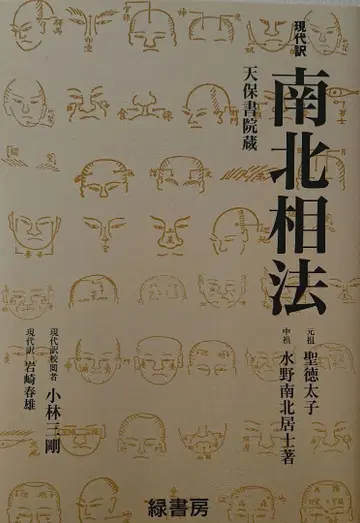 現代訳
南北相法
天保書院蔵
元祖 聖徳太子
中祖 水野南北居士著
現代訳校閲者 小林三剛
現代訳 岩崎春雄
緑書房